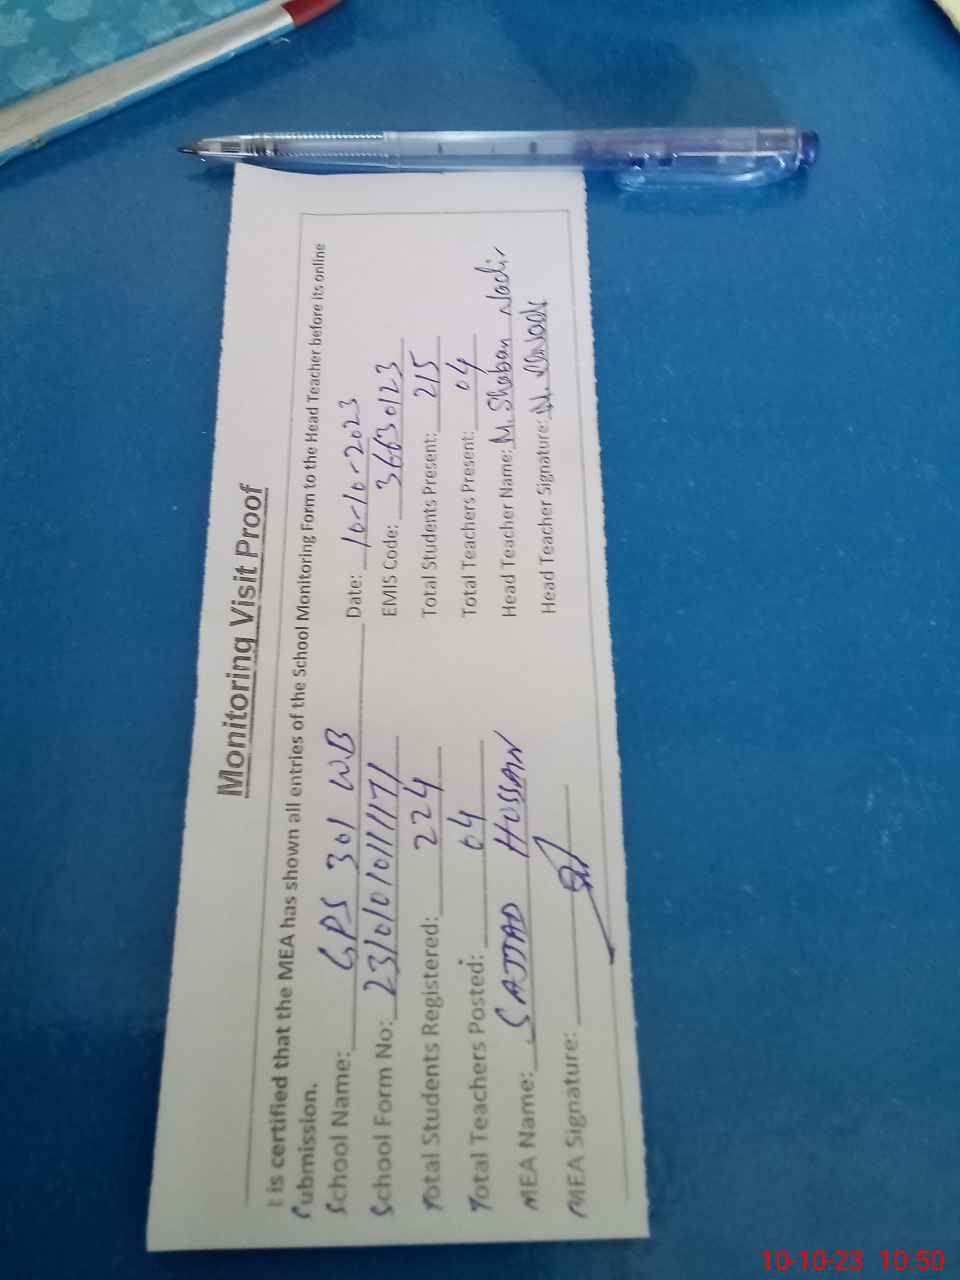 Monitoring Visit Proof
t is certified that the MEA has shown all entries of the School Monitoring Form to the Head Teacher before its online
Submission.
School Name: GPS 301 WB Date: 10-10-2023
School Form No: EMIS Code: 36630123
Total Students Registered: 224 Total Students Present: 215
Total Teachers Posted: 04 Total Teachers Present: 04
MEA Name: SAJJAD HUSSAIN Head Teacher Name: M. Shaban Nadir
MEA Signature: Head Teacher Signature:
10-10-23 10.50